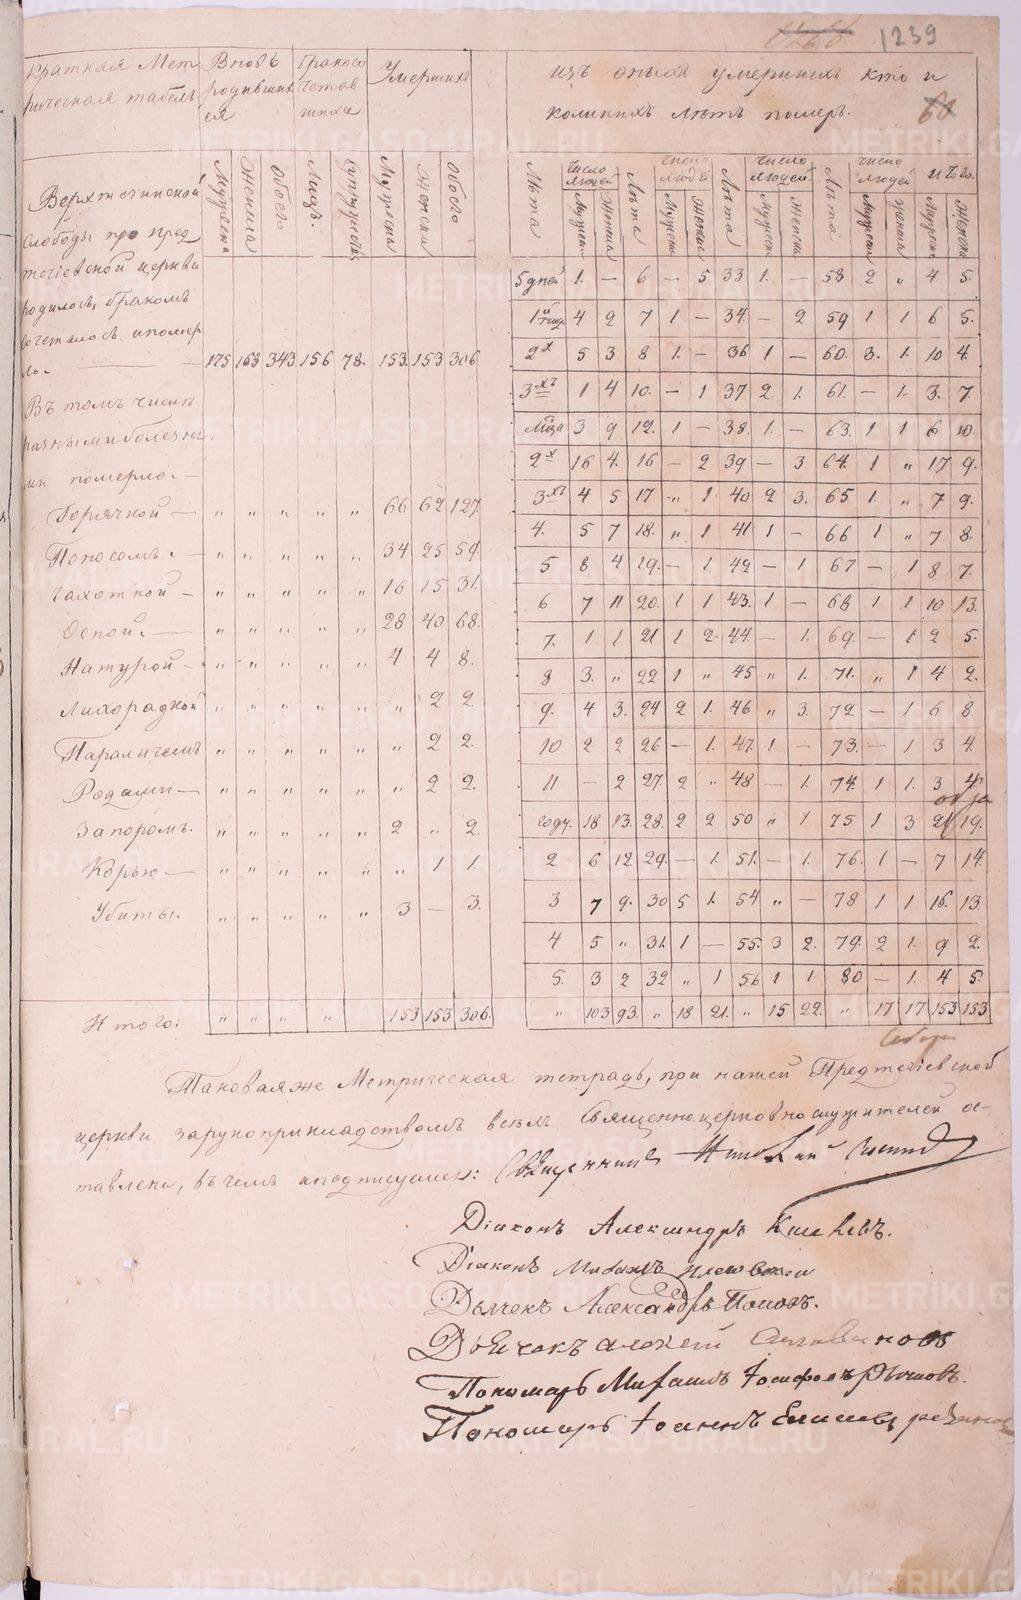 1239
60
Краткая Мет
рическая табель
Вновь
родивших
ся
Бракосо
четав
шихся
Умершихъ
изъ оныхъ умершихъ кто и
коликихъ лѣтъ померъ.
Мужеска Женска Обоего Мужеска Женски Обоего
Лѣта число людей Лѣта число людей Лѣта число людей Лѣта число людей Итого.
Верхтечинской
слободы при пред
течіевской церкви
родилось, бракомъ
сочеталось и помер
ло. — 175 163 343 156 78. 153. 153 306.
Въ томъ числѣ
разными болезня
ми померло. —
Горячкой — „ „ „ „ „ 66 62 127.
Поносомъ. — „ „ „ „ „ 34 25 59.
Чахоткой — „ „ „ „ „ 16 15 31.
Оспой. — „ „ „ „ „ 28 40 68.
Натурой — „ „ „ „ „ 4 4 8.
Лихорадкой „ „ „ „ „ „ 2 2
Параличемъ „ „ „ „ „ „ 2 2.
Родами — „ „ „ „ „ „ 2 2.
Запоромъ. „ „ „ „ „ 2 „ 2.
Корью — „ „ „ „ „ „ 1 1.
Убиты. „ „ „ „ „ 3 — 3.
Итого: „ „ „ „ 153 153 306.
5 дней 1. — 6 — 5 33 1. — 58 2 „ 4 5.
4 2 7 1 — 34. — 2 59 1 1 6 5.
2х 5 3 8 1. — 36 1 — 60. 3. 1. 10 4.
3хъ 1 4 10. — 1 37 2 1. 61. — 1. 3. 7.
3 9 12. 1 — 38. 1. — 63. 1 1 6 10.
2х 16 4. 16 — 2 39 — 3 64. 1 „ 17 9.
3хъ 4 5 17 „ 1. 40 2 3. 65 1. „ 7 9.
4. 5 7 18. „ 1 41 1 — 66 1 „ 7 8.
5 8 4 19. — 1 42 — 1 67 — 1 8 7.
6 7 11 20. 1 1 43. 1 — 68 1 1 10 13.
7. 1 1 21 1 2. 44. — 1. 69. — 1 2 5.
8 3. „ 22 1 „ 45 „ 1. 71. „ 1 4 2.
9. 4 3. 24 2 1. 46 „ 3. 72 — 1 6 8.
10 2 2 26 — 1. 47. 1 — 73. — 1 3 4.
11 — 2 27. 2 „ 48 — 1. 74. 1 1. 3 4.
году. 18 13. 28. 2 2 50 „ 1 75 1 3 21 19.
2 6 12 29. — 1. 51. — 1. 76. 1 — 7 14.
3 7 9. 30 5 1. 54 „ — 78 1 1 16. 13.
4 5 „ 31. 1 — 55. 3 2. 79. 2 1. 9 2.
5. 3 2 32 „ 1 56 1 1 80 — 1. 4 5.
„ 103 93. „ 18 21. „ 15 22. „ 17 17 153 153
Таковая же Метрическая тетрадь, при нашей Предтечіевской
церкви за рукоприкладствомъ всѣхъ Священноцерковнослужителей ос-
тавлена, въ чемъ и подписуемся: Священникъ Николай
Діаконъ Александръ
Діаконъ Михаилъ
Дьячекъ Александръ Поповъ.
Дьячекъ алексей
Пономарь Михаилъ Іосифовъ
Пономарь Іоаннъ
METRIKI.GASO-URAL.RU